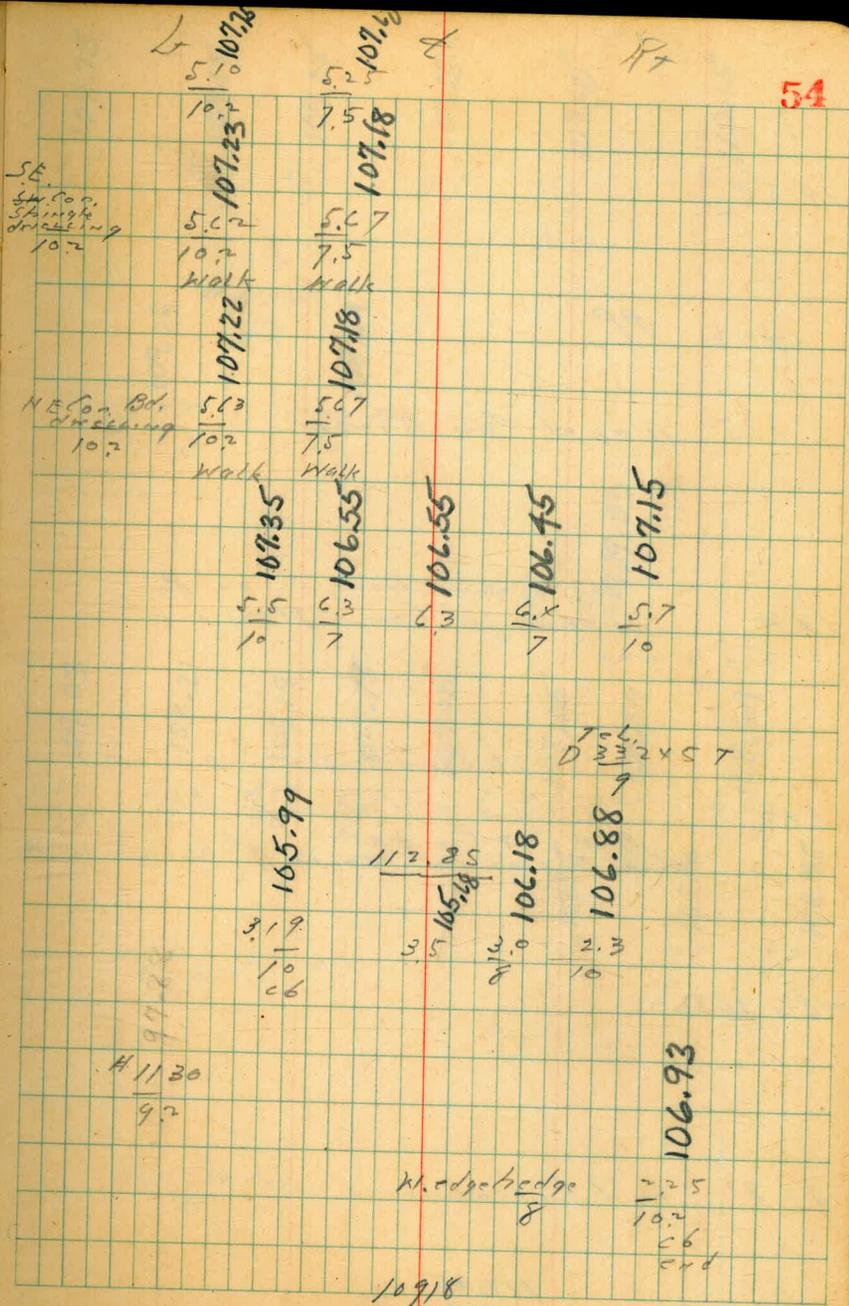 Lt 107.75 107.60 ℄ Rt
54
5.10 5.25
10.2 7.5
107.23 107.18
S.E.
Shingle
dwelling
10.2
5.62 5.67
10.2 7.5
Walk Walk
107.22 107.18
N E Cor. Bd.
dwelling
10.2
5.63 5.67
10.2 7.5
Walk Walk
107.35 106.55 106.55 106.45 107.15
5.5 6.3 6.3 6.4 5.7
10 7 7 10
9
105.99 112.85 105.68 106.18 106.88
3.19 3.5 3.0 2.3
10 8 10
cb
97.88
H 11 30
9.2
106.93
W. edge hedge
8
2.25
10.2
cb
end
109.18